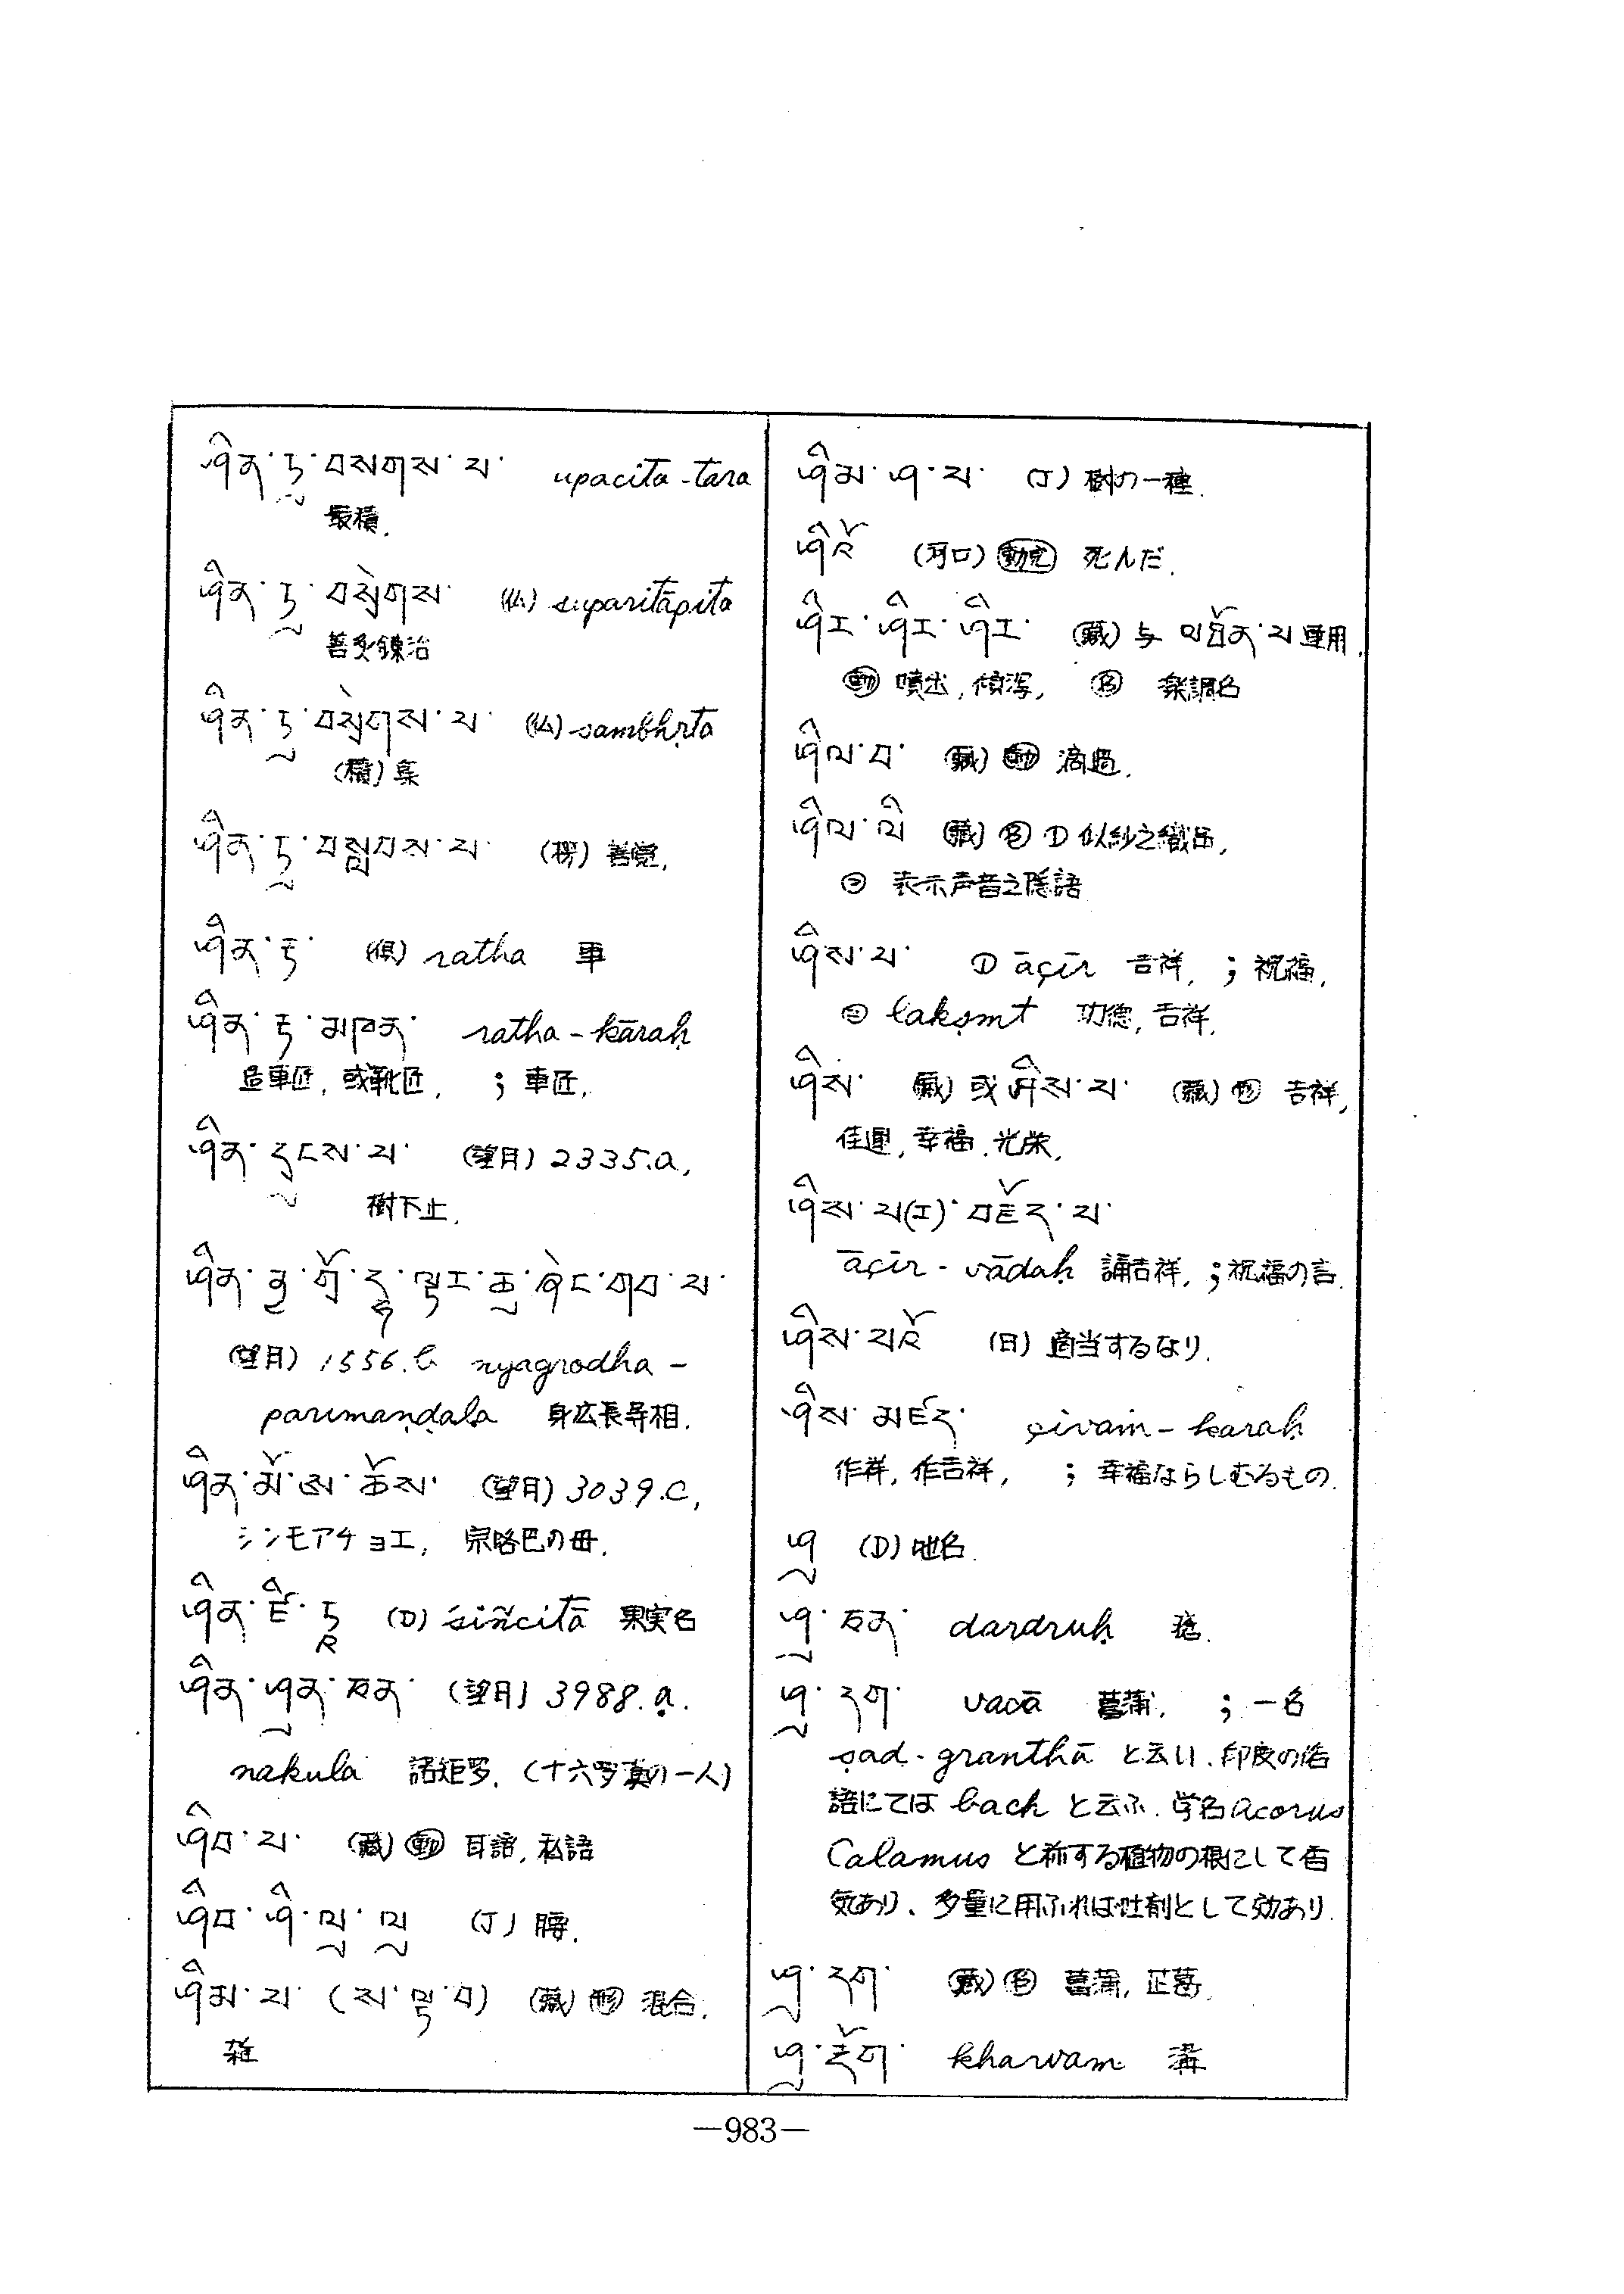 ཤིན་ཏུ་བསགས་པ་ upacita-tara
最積.
ཤིན་ཏུ་བསྲེགས་ (仏) suparitāpita
善炙錬治
ཤིན་ཏུ་བསྲེགས་པ་ (仏) sambhṛta
(積)集
ཤིན་ཏུ་བསླབས་པ་ (楞) 善覚.
ཤིན་ཏ་ (倶) ratha 車
ཤིན་ཏ་མཁན་ ratha-kāraḥ
造車匠, 或靴匠, ; 車匠,
ཤིན་དུངས་པ་ (望月) 2335.a,
樹下止.
ཤིན་ཉ་གྲོ་དྷ་ལྟར་ཆུ་ཞེང་གབ་པ་
(望月) 1556.b nyagrodha-
parimaṇḍala 身広長等相.
ཤིན་མོ་ཨ་ཆོས་ (望月) 3039.C,
シンモアチョエ, 宗喀巴の母.
(D) śiñcitā 果実名
ཤིན་ཤུན་ཅན་ (望月) 3988.a.
nakula 諾矩罗. (十六罗漢の一人)
ཤིབ་པ་ (藏) 動 耳語, 私語
ཤིབ་ཤི་ལུ་ལུ (J) 腰.
ཤིམ་པ་ (ས་ལྟ་བ) (藏) 形 混合.
雑
ཤིམ་ཤ་པ་ (J) 樹の一種.
ཤིའོ (河口) 動完 死んだ.
ཤིར་ཤིར་ཤིར་ (藏) 与 འབྲོན་པ 連用.
動 噴出, 傾瀉, 名 楽調名
ཤིལ་བ་ (藏) 動 滴過.
ཤིལ་ལི (藏) 名 ① 似紗之織品,
② 表示声音之隠語
ཤིས་པ་ ① āçīr 吉祥, ; 祝福,
② lakṣmī 功徳, 吉祥.
ཤིས་ (藏) 或 ཤིས་པ་ (藏) 形 吉祥,
佳運, 幸福. 光栄.
ཤིས་པ(ར)་བརྗོད་པ་
āçīr-vādaḥ 誦吉祥, ; 祝福の言.
ཤིས་པའོ (日) 適当するなり.
ཤིས་མཛོད་ çivaṁ-karaḥ
作祥, 作吉祥, ; 幸福ならしむるもの.
ཤུ (D) 地名.
ཤུ་ཅན་ dardruḥ
ཤུ་དག་ vacā 菖蒲. ; 一名
ṣaḍ-granthā と云い. 印度の俗
語にては bach と云ふ. 学名 acorus
Calamus と称する植物の根にして香
気あり、多量に用ふれば吐剤として効あり.
ཤུ་དག་ (藏) 名 菖蒲,
ཤུ་རྡོག་ kharvam 溝
—983—